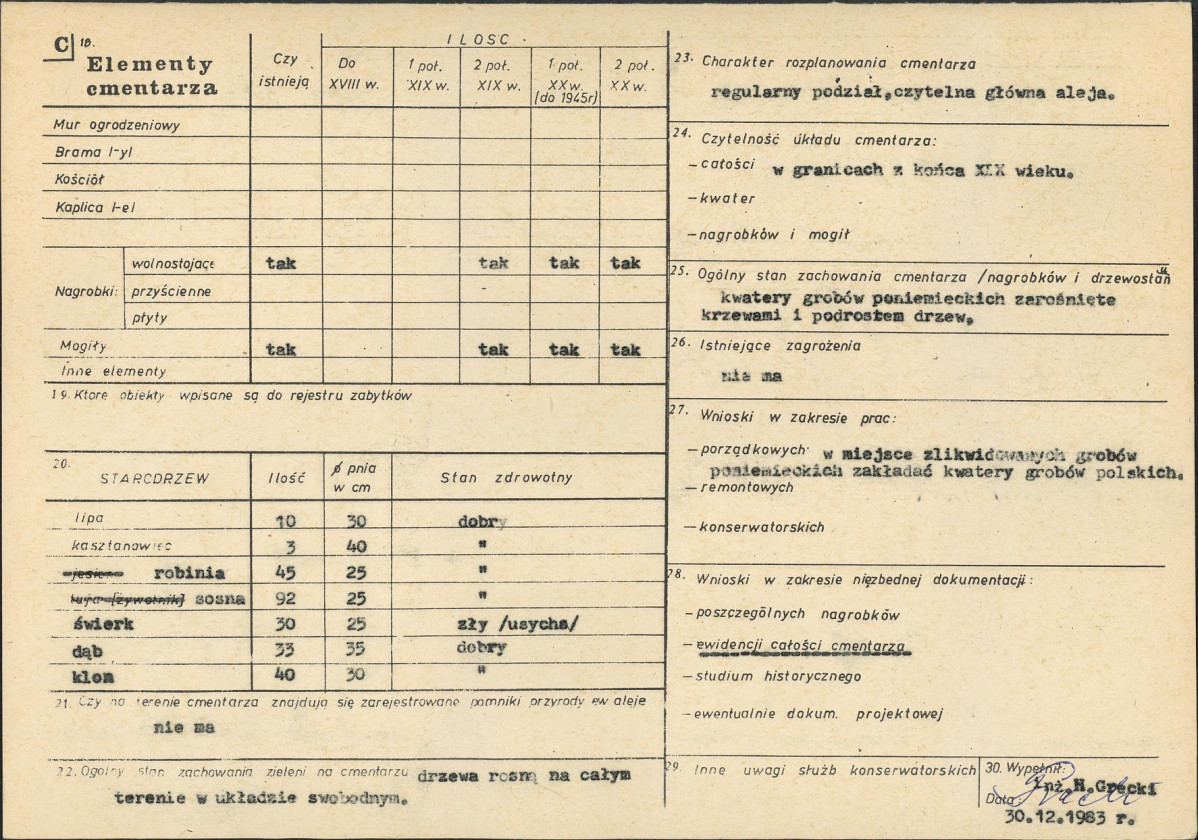 C 18.
Elementy
cmentarza
Czy
istnieją
ILOSC
Do
XVIII w.
1 poł.
XIX w.
2 poł.
XIX w.
1 poł.
XX w.
(do 1945r)
2 poł.
XX w.
Mur ogrodzeniowy
Brama /-y/
Kościół
Kaplica /-e/
Nagrobki:
wolnostojące tak tak tak tak
przyścienne
płyty
Mogiły tak tak tak tak
Inne elementy
19. Które obiekty wpisane są do rejestru zabytków
20.
STARODRZEW Ilość ø pnia w cm Stan zdrowotny
lipa 10 30 dobry
kasztanowiec 3 40 "
jesion robinia 45 25 "
tuja [żywotnik] sosna 92 25 "
świerk 30 25 zły /usycha/
dąb 33 35 dobry
klon 40 30 "
21. Czy na terenie cmentarza znajdują się zarejestrowane pomniki przyrody ew aleje
nie ma
22. Ogólny stan zachowania zieleni na cmentarzu drzewa rosną na całym
terenie w układzie swobodnym.
23. Charakter rozplanowania cmentarza
regularny podział, czytelna główna aleja.
24. Czytelność układu cmentarza:
— całości w granicach z końca XIX wieku.
— kwater
— nagrobków i mogił
25. Ogólny stan zachowania cmentarza /nagrobków i drzewostanu
kwatery grobów poniemieckich zarośnięte
krzewami i podrostem drzew.
26. Istniejące zagrożenia
nie ma
27. Wnioski w zakresie prac:
— porządkowych w miejsce zlikwidowanych grobów
poniemieckich zakładać kwatery grobów polskich.
— remontowych
— konserwatorskich
28. Wnioski w zakresie niezbędnej dokumentacji:
— poszczególnych nagrobków
— ewidencji całości cmentarza
— studium historycznego
— ewentualnie dokum. projektowej
29. Inne uwagi służb konserwatorskich
30. Wypełnił:
inż. H. Grecki
Data:
30.12.1983 r.